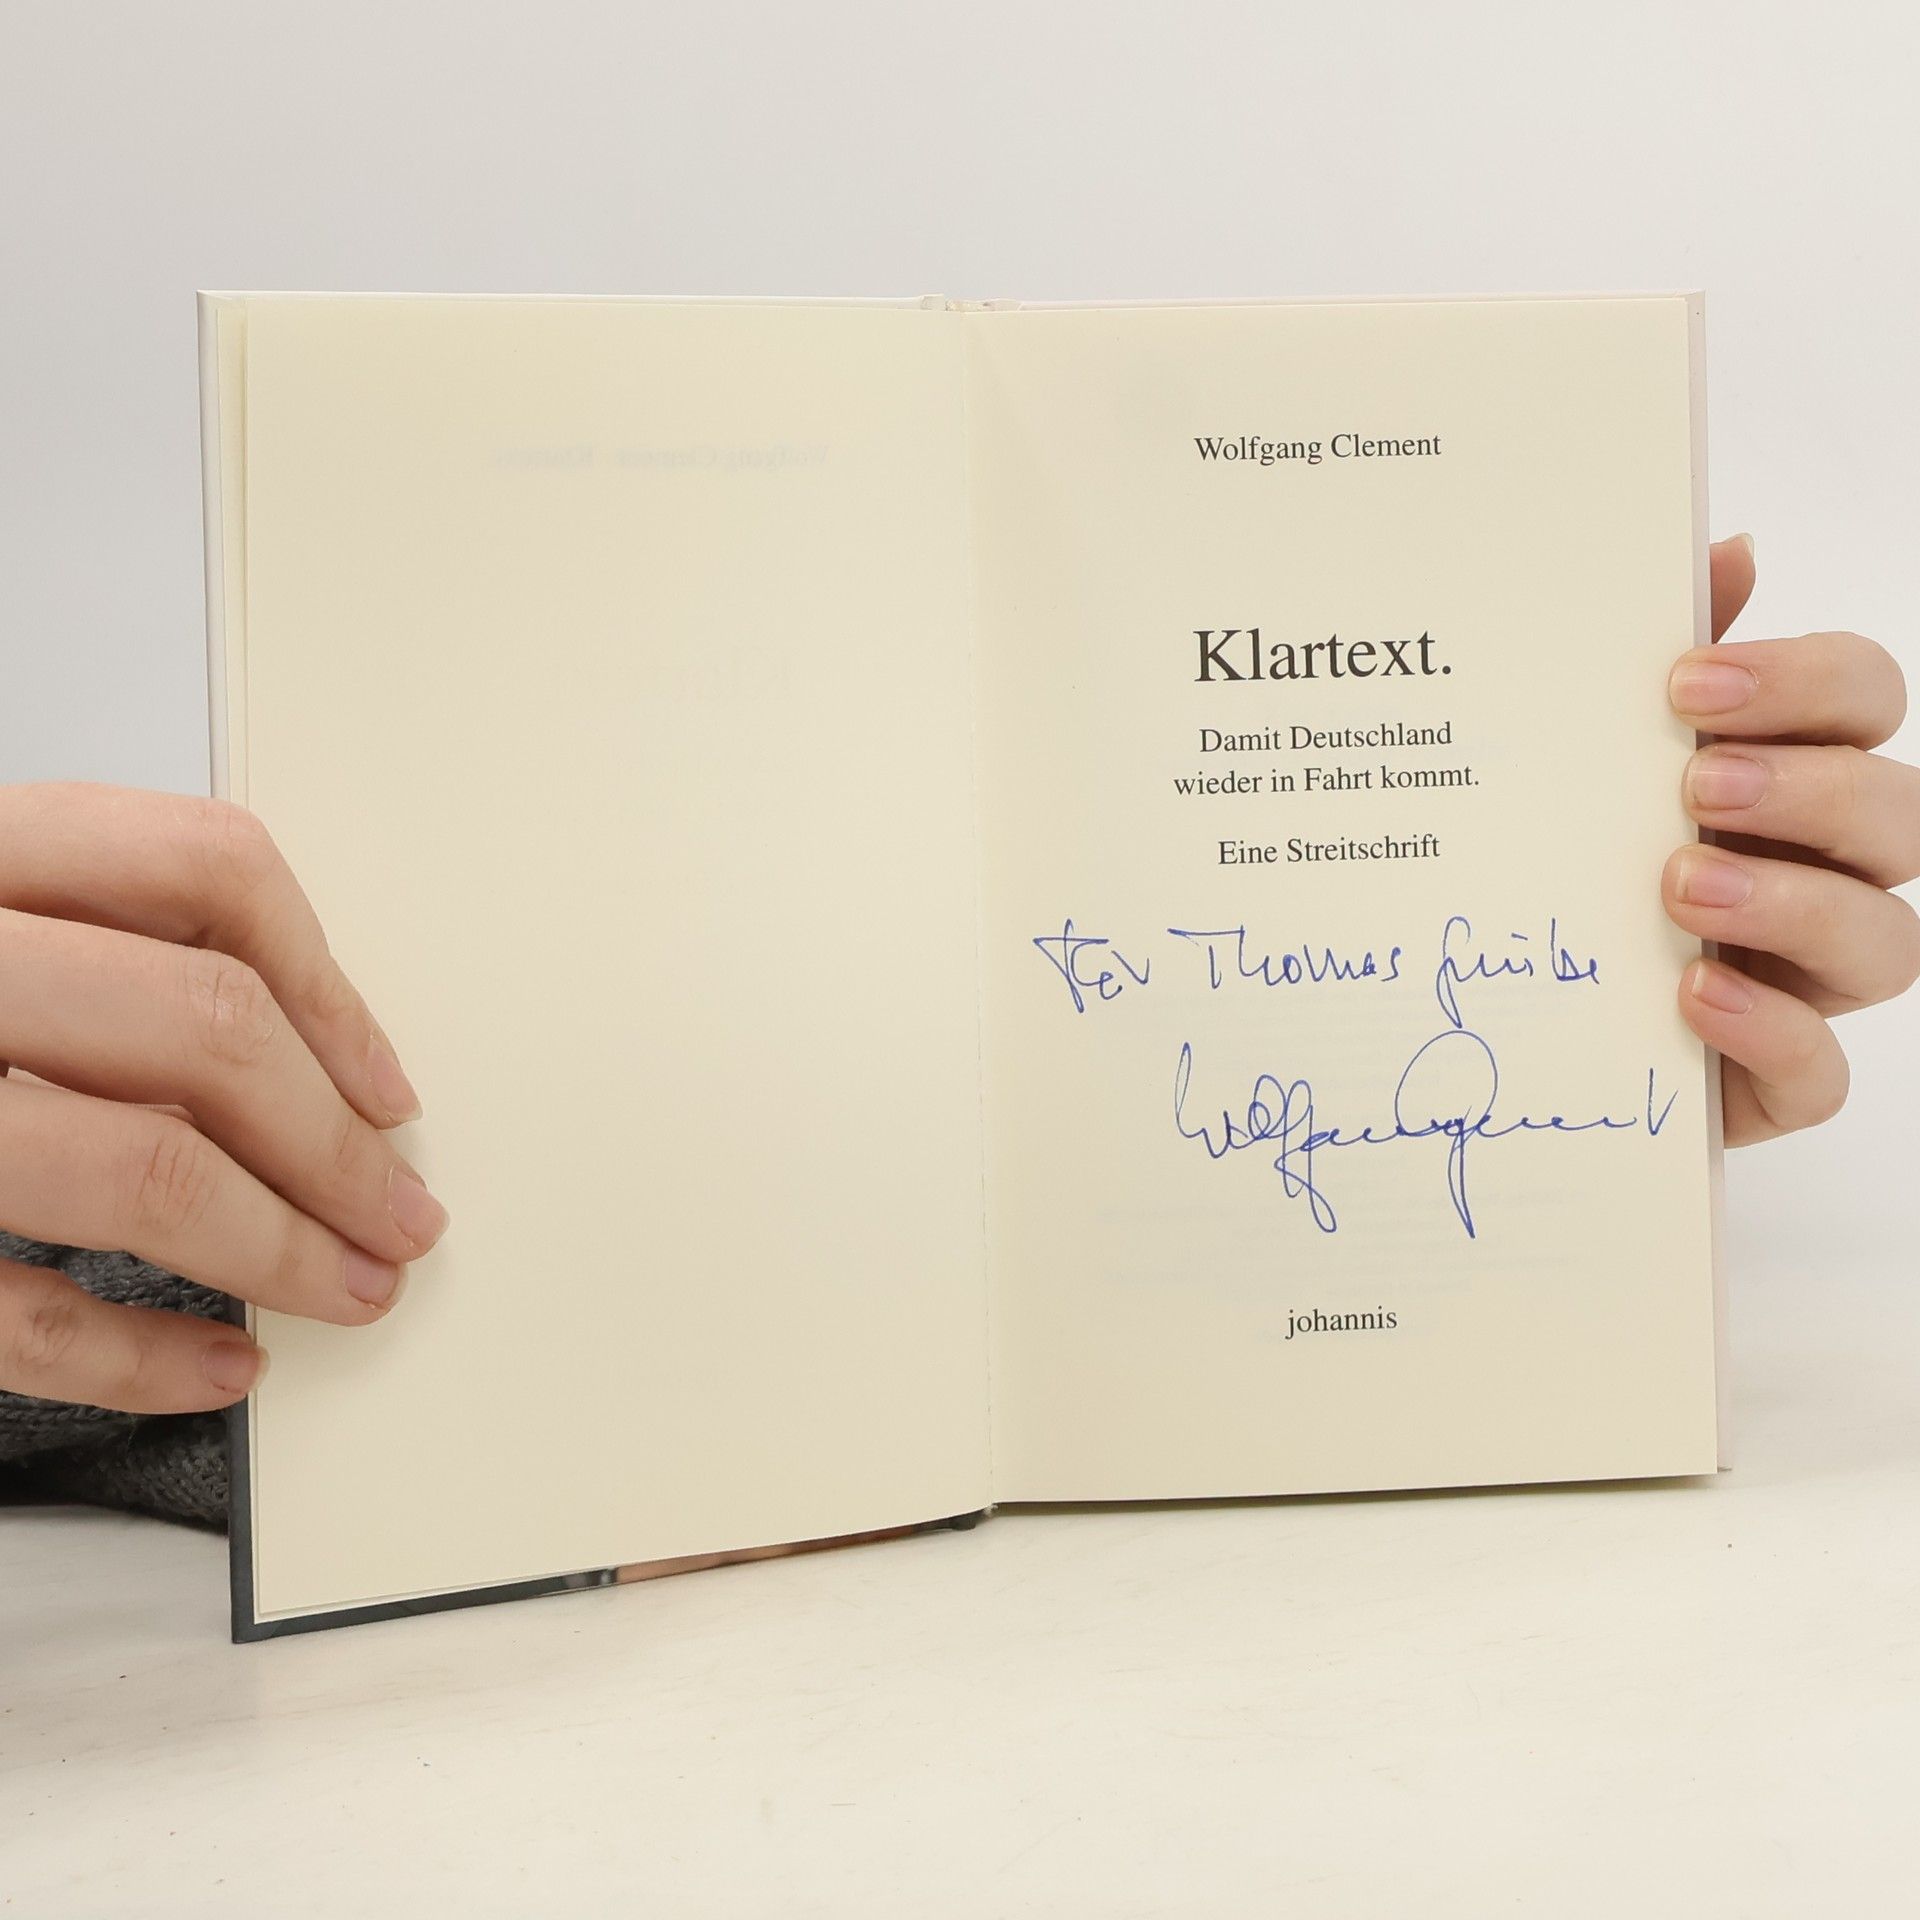 Wolfgang Clement
Klartext.
Damit Deutschland
wieder in Fahrt kommt.
Eine Streitschrift
Thomas
Wolfgang Clement
johannis